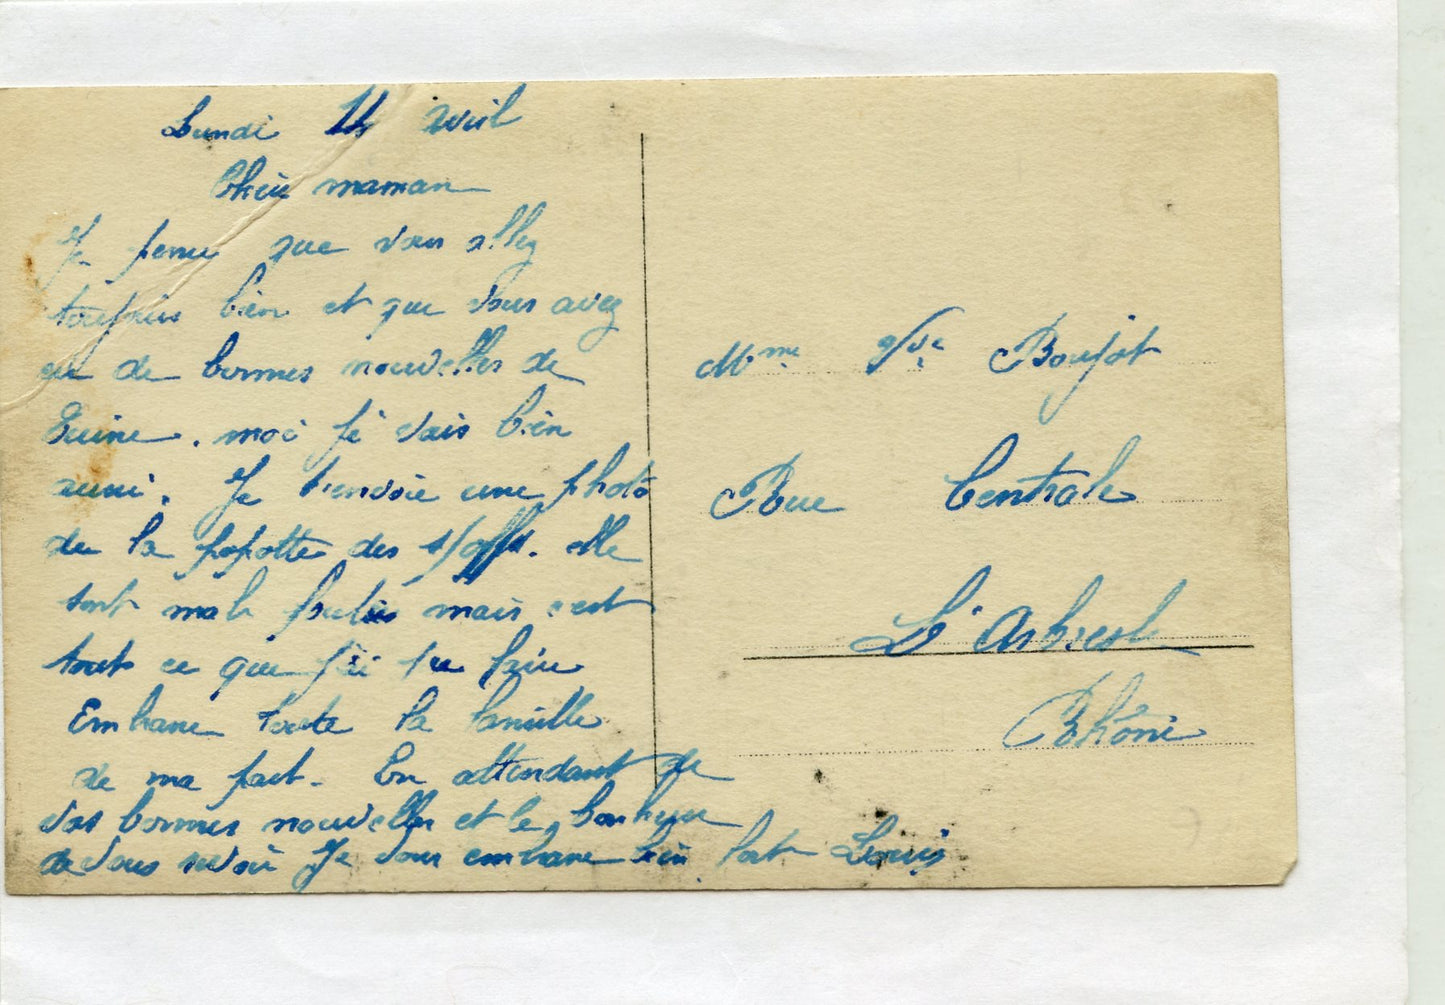 Lundi 14 avril
Chère maman
Je pense que vous allez
toujours bien et que vous avez
eu de bonnes nouvelles de
moi je vais bien
aussi. Je t'envoie une photo
de la popotte des s/off. elle
sont mal mais c'est
tout ce que j'ai pu faire
Embrasse toute la famille
de ma part. En attendant de
vos bonnes nouvelles et le bonheur
de vous revoir Je vous embrasse bien fort Louis
Mme Vve Boujot
Rue Centrale
L'Arbresle
Rhône